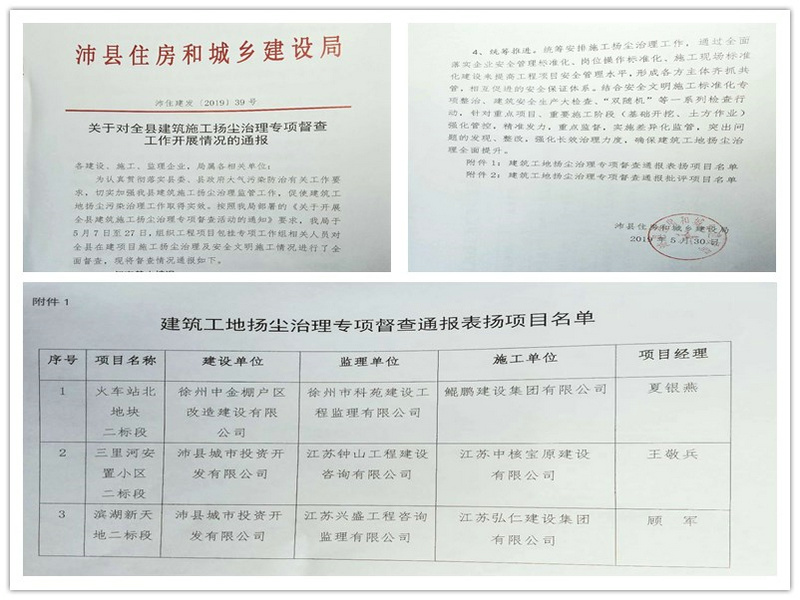 沛县住房和城乡建设局
沛住建发〔2019〕39号
关于对全县建筑施工扬尘治理专项督查
工作开展情况的通报
各建设、施工、监理企业，局属各相关单位：
为认真贯彻落实县委、县政府大气污染防治有关工作要
求，切实加强我县建筑施工扬尘治理监管工作，促使建筑工
地扬尘污染治理工作取得实效。按照我局部署的《关于开展
全县建筑施工扬尘治理专项督查活动的通知》要求，我局于
5月7日至27日，组织工程项目包挂专项工作组相关人员对
全县在建项目施工扬尘治理及安全文明施工情况进行了全
面督查，现将督查情况通报如下。
4、统筹推进。统筹安排施工扬尘治理工作，通过全面
落实企业安全管理标准化、岗位操作标准化、施工现场标准
化建设来提高工程项目安全管理水平，形成各方主体齐抓共
管，相互促进的安全保证体系。结合安全文明施工标准化专
项整治、建筑安全生产大检查、“双随机”等一系列检查行
动，针对重点项目、重要施工阶段（基础开挖、土方作业）
强化管控，精准发力，重点监督，实施差异化监管，突出问
题的发现、整改，强化长效治理力度，确保建筑工地扬尘治
理全面提升。
附件1：建筑工地扬尘治理专项督查通报表扬项目名单
附件2：建筑工地扬尘治理专项督查通报批评项目名单
沛县住房和城乡建设局
2019年5月30日
附件1
建筑工地扬尘治理专项督查通报表扬项目名单
序号 项目名称 建设单位 监理单位 施工单位 项目经理
1 火车站北 徐州中金棚户区 徐州市科苑建设工 鲲鹏建设集团有限公司 夏银燕
地块 改造建设有限 程监理有限公司
二标段 公司
2 三里河安 沛县城市投资开 江苏钟山工程建设 江苏中核宝原建设 王敬兵
置小区 发有限公司 咨询有限公司 有限公司
二标段
3 滨湖新天 沛县城市投资开 江苏兴盛工程咨询 江苏弘仁建设集团 顾 军
地二标段 发有限公司 监理有限公司 有限公司